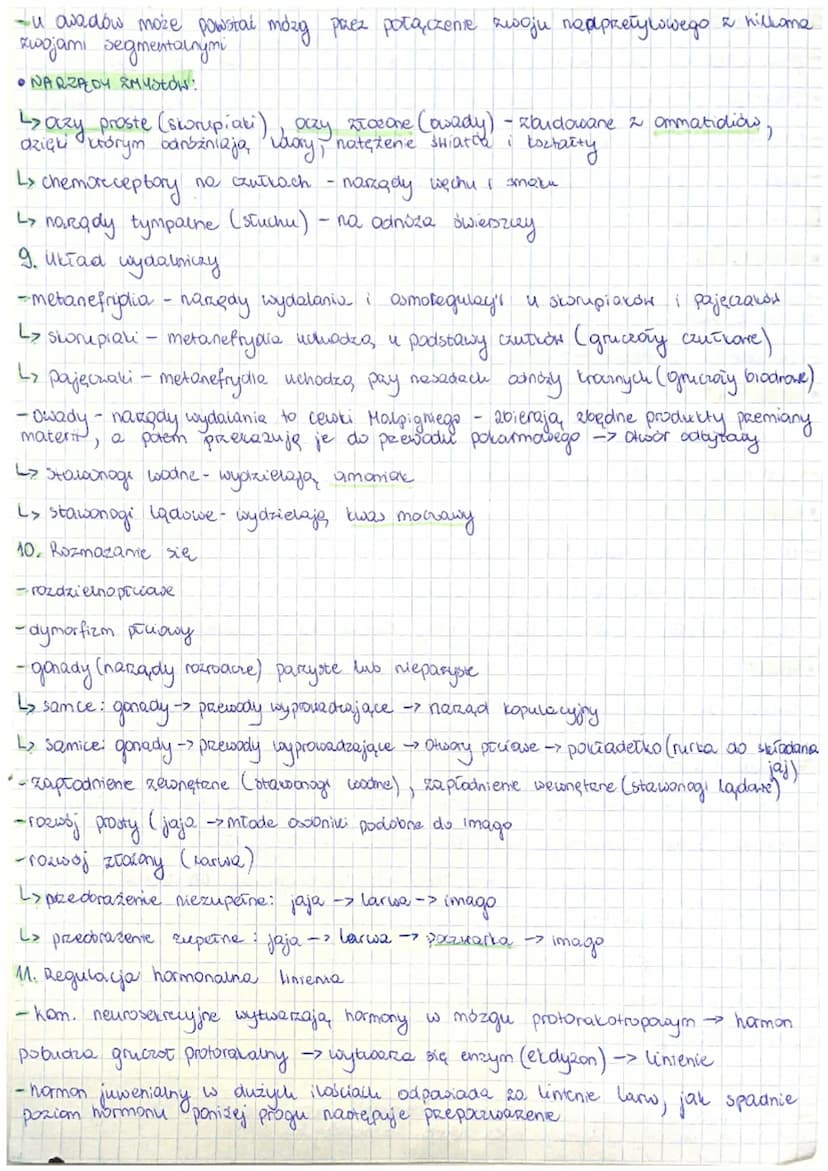 - u owadów może powstać mózg przez połączenie zwoju nadprzełykowego z kilkoma
zwojami segmentalnymi
• NARZĄDY ZMYSŁÓW:
↳ oczy proste (skorupiaki), oczy złożone (owady) - zbudowane z ommatidiów,
dzięki którym odróżniają kolory, natężenie światła i kształty
↳ chemoreceptory na czułkach - narządy węchu i smaku
↳ narządy tympalne (słuchu) - na odnóża świerszczy
9. Układ wydalniczy
- metanefrydia - narządy wydalania i osmoregulacji u skorupiaków i pajęczaków
↳ skorupiaki - metanefrydia uchodzą u podstawy czułków (gruczoły czułkowe)
↳ pajęczaki - metanefrydia uchodzą przy nasadach odnóży krocznych (gruczoły biodrowe)
- Owady - narządy wydalania to cewki Malpigniego - zbierają zbędne produkty przemiany
materii, a potem przekazują je do przewodu pokarmowego -> otwór odbytowy
↳ stawonogi wodne - wydzielają amoniak
↳ stawonogi lądowe - wydzielają kwas moczowy
10. Rozmażanie się
- rozdzielnopłciowe
- dymorfizm płciowy
- gonady (narządy rozrodcze) parzyste lub nieparzyste
↳ samce: gonady -> przewody wyprowadzające -> narząd kopulacyjny
↳ samice: gonady -> przewody wyprowadzające -> otwory płciowe -> pokładełko (rurka do składania
jaj)
- zapłodnienie zewnętrzne (stawonogi wodne), zapłodnienie wewnętrzne (stawonogi lądowe)
- rozwój prosty (jaja -> młode osobniki podobne do imago
- rozwój złożony (larwa)
↳ przeobrażenie niezupełne: jaja -> larwa -> imago
↳ przeobrażenie zupełne: jaja -> larwa -> poczwarka -> imago
11. Regulacja hormonalna linienia
- kom. neurosekrecyjne wytwarzają hormony w mózgu protorakotropowym -> hormon
pobudza gruczoł protorakalny -> wytwarza się enzym (ekdyzon) -> linienie
- hormon juwenialny w dużych ilościach odpowiada za linienie larw, jak spadnie
poziom hormonu poniżej progu następuje przepoczwarzenie